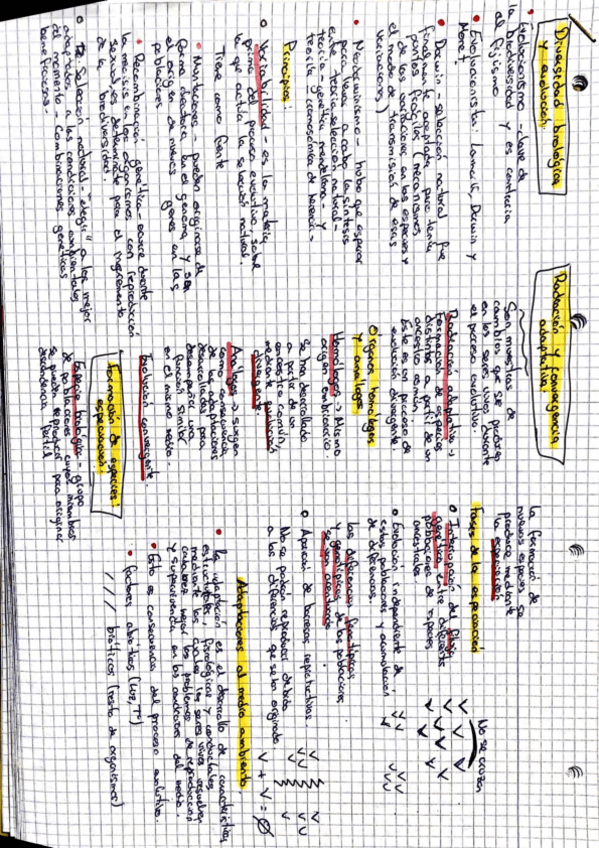 Diversidad biológica
y evolución.
• Evolucionismo - clave de
la biodiversidad y es contraria
al fijismo
• Evolucionista: Lamarck, Darwin y
More?
• Darwin - selección natural fue
finalmente aceptada pero tenía
puntos frágiles (mecanismos
de las variaciones en las especies y
el modo de transmisión de esas
variaciones)
• Neodarwinismo - hubo que esperar
para llevar a cabo la síntesis
entre teoría selección natural -
teoría - genética mendeliana - y
teoría cromosómica de herencia -
Principios:
○ Variabilidad - es la materia
prima del proceso evolutivo, sobre
la que actúa la selección natural.
Tiene como fuente
• Mutaciones - pueden originarse de
forma aleatoria en el genoma y son
el origen de nuevos genes en las
poblaciones
• Recombinación genética - ocurre durante
la meiosis en los organismos con reproducción
sexual es determinante para el incremento
de la biodiversidad.
○ Selección natural "elegir" a los mejor
adaptados a las condiciones ambientales
del momento - Combinaciones genéticas
beneficiosas -
Radiación y convergencia
adaptativa:
Son muestras de
cambios que se producen
en los seres vivos durante
el proceso evolutivo.
Radiación adaptativa →
Formación de especies
distintas a partir de un
ancestro común
Este es un proceso de
evolución divergente.
Órganos homólogos
y análogos
Homólogos → Mismo
origen embrionario.
Se ha desarrollado
a partir de un
ancestro común,
mediante evolución
divergente.
Análogos → surgen
como consecuencia
de las adaptaciones
desarrolladas para
desempeñar una
función similar
en el mismo medio.
Evolución convergente.
Formación de especies:
especiación.
Especie biológica - grupo
de poblaciones cuyos miembros
se pueden reproducir para originar
descendencia fértil
La formación de
nuevas especies se
produce mediante
la especiación
Fases de la especiación
○ Interrupción del flujo
genético entre diferentes
poblaciones de especies
ancestrales.
No se cruzan
○ Evolución independiente de
estas poblaciones y acumulación
de diferencias.
Las diferencias fenotípicas
y genotípicas de las poblaciones
se van acentuando
○ Aparición de barreras reproductivas.
No se podrán reproducir debido
a las diferencias que se han originado
V + V = ∅
Adaptaciones al medio ambiente.
• La adaptación es el desarrollo de características
estructurales, fisiológicas y conductuales
mediante los cuales los seres vivos resuelven
cada vez mejor los problemas de reproducción
y supervivencia en las condiciones del medio.
• Esto es consecuencia del proceso evolutivo.
• factores abióticos (luz, Tª)
/ / / bióticos (resto de organismos)